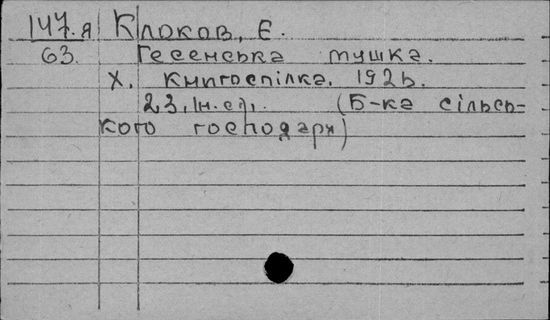 147.я Клоков, Є.
63. Гесенська мушка.
Х. Книгоспілка. 1926.
23, Ін. ст. (Б-ка сільсь-
кого господаря)